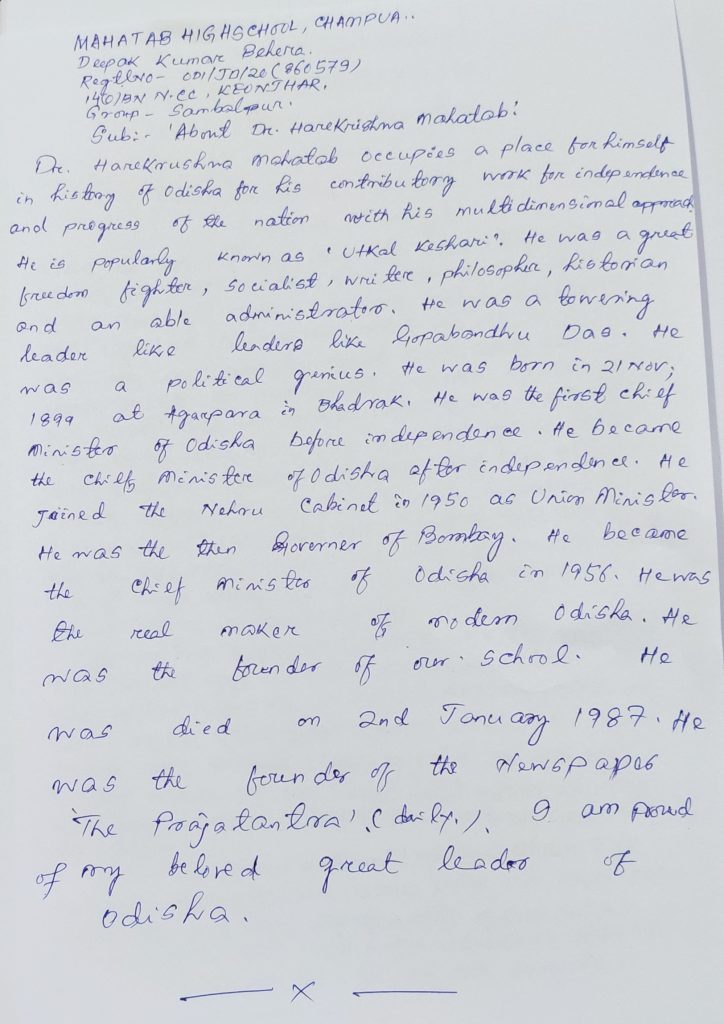 MAHATAB HIGHSCHOOL, CHAMPUA..
Deepak Kumar Behera.
Regtlno- ODI/JD/20 (860579)
14(O)BN N.CC, KEONJHAR,
Group - Sambalpur.
Sub:- 'About Dr. Harekrishna Mahatab:
Dr. Harekrushna Mahatab occupies a place for himself
in history of Odisha for his contributory work for independence
and progress of the nation with his multidimensional approach
He is popularly known as 'Utkal Keshari'. He was a great
freedom fighter, socialist, writere, philosopher, historian
and an able administrator. He was a towering
leader like leaders like Gopabandhu Das. He
was a political genius. He was born in 21 Nov;
1899 at Agarpara in Bhadrak. He was the first chief
Minister of Odisha before independence. He became
the chief Ministere of Odisha after independence. He
Joined the Nehru Cabinet in 1950 as Union Minister.
He was the then Governer of Bombay. He became
the chief minister of Odisha in 1956. He was
the real maker of modern Odisha. He
was the founder of our school. He
was died on 2nd January 1987. He
was the founder of the Newspaper
'The Prajatantra' (daily.). I am proud
of my beloved great leader of
Odisha.
X